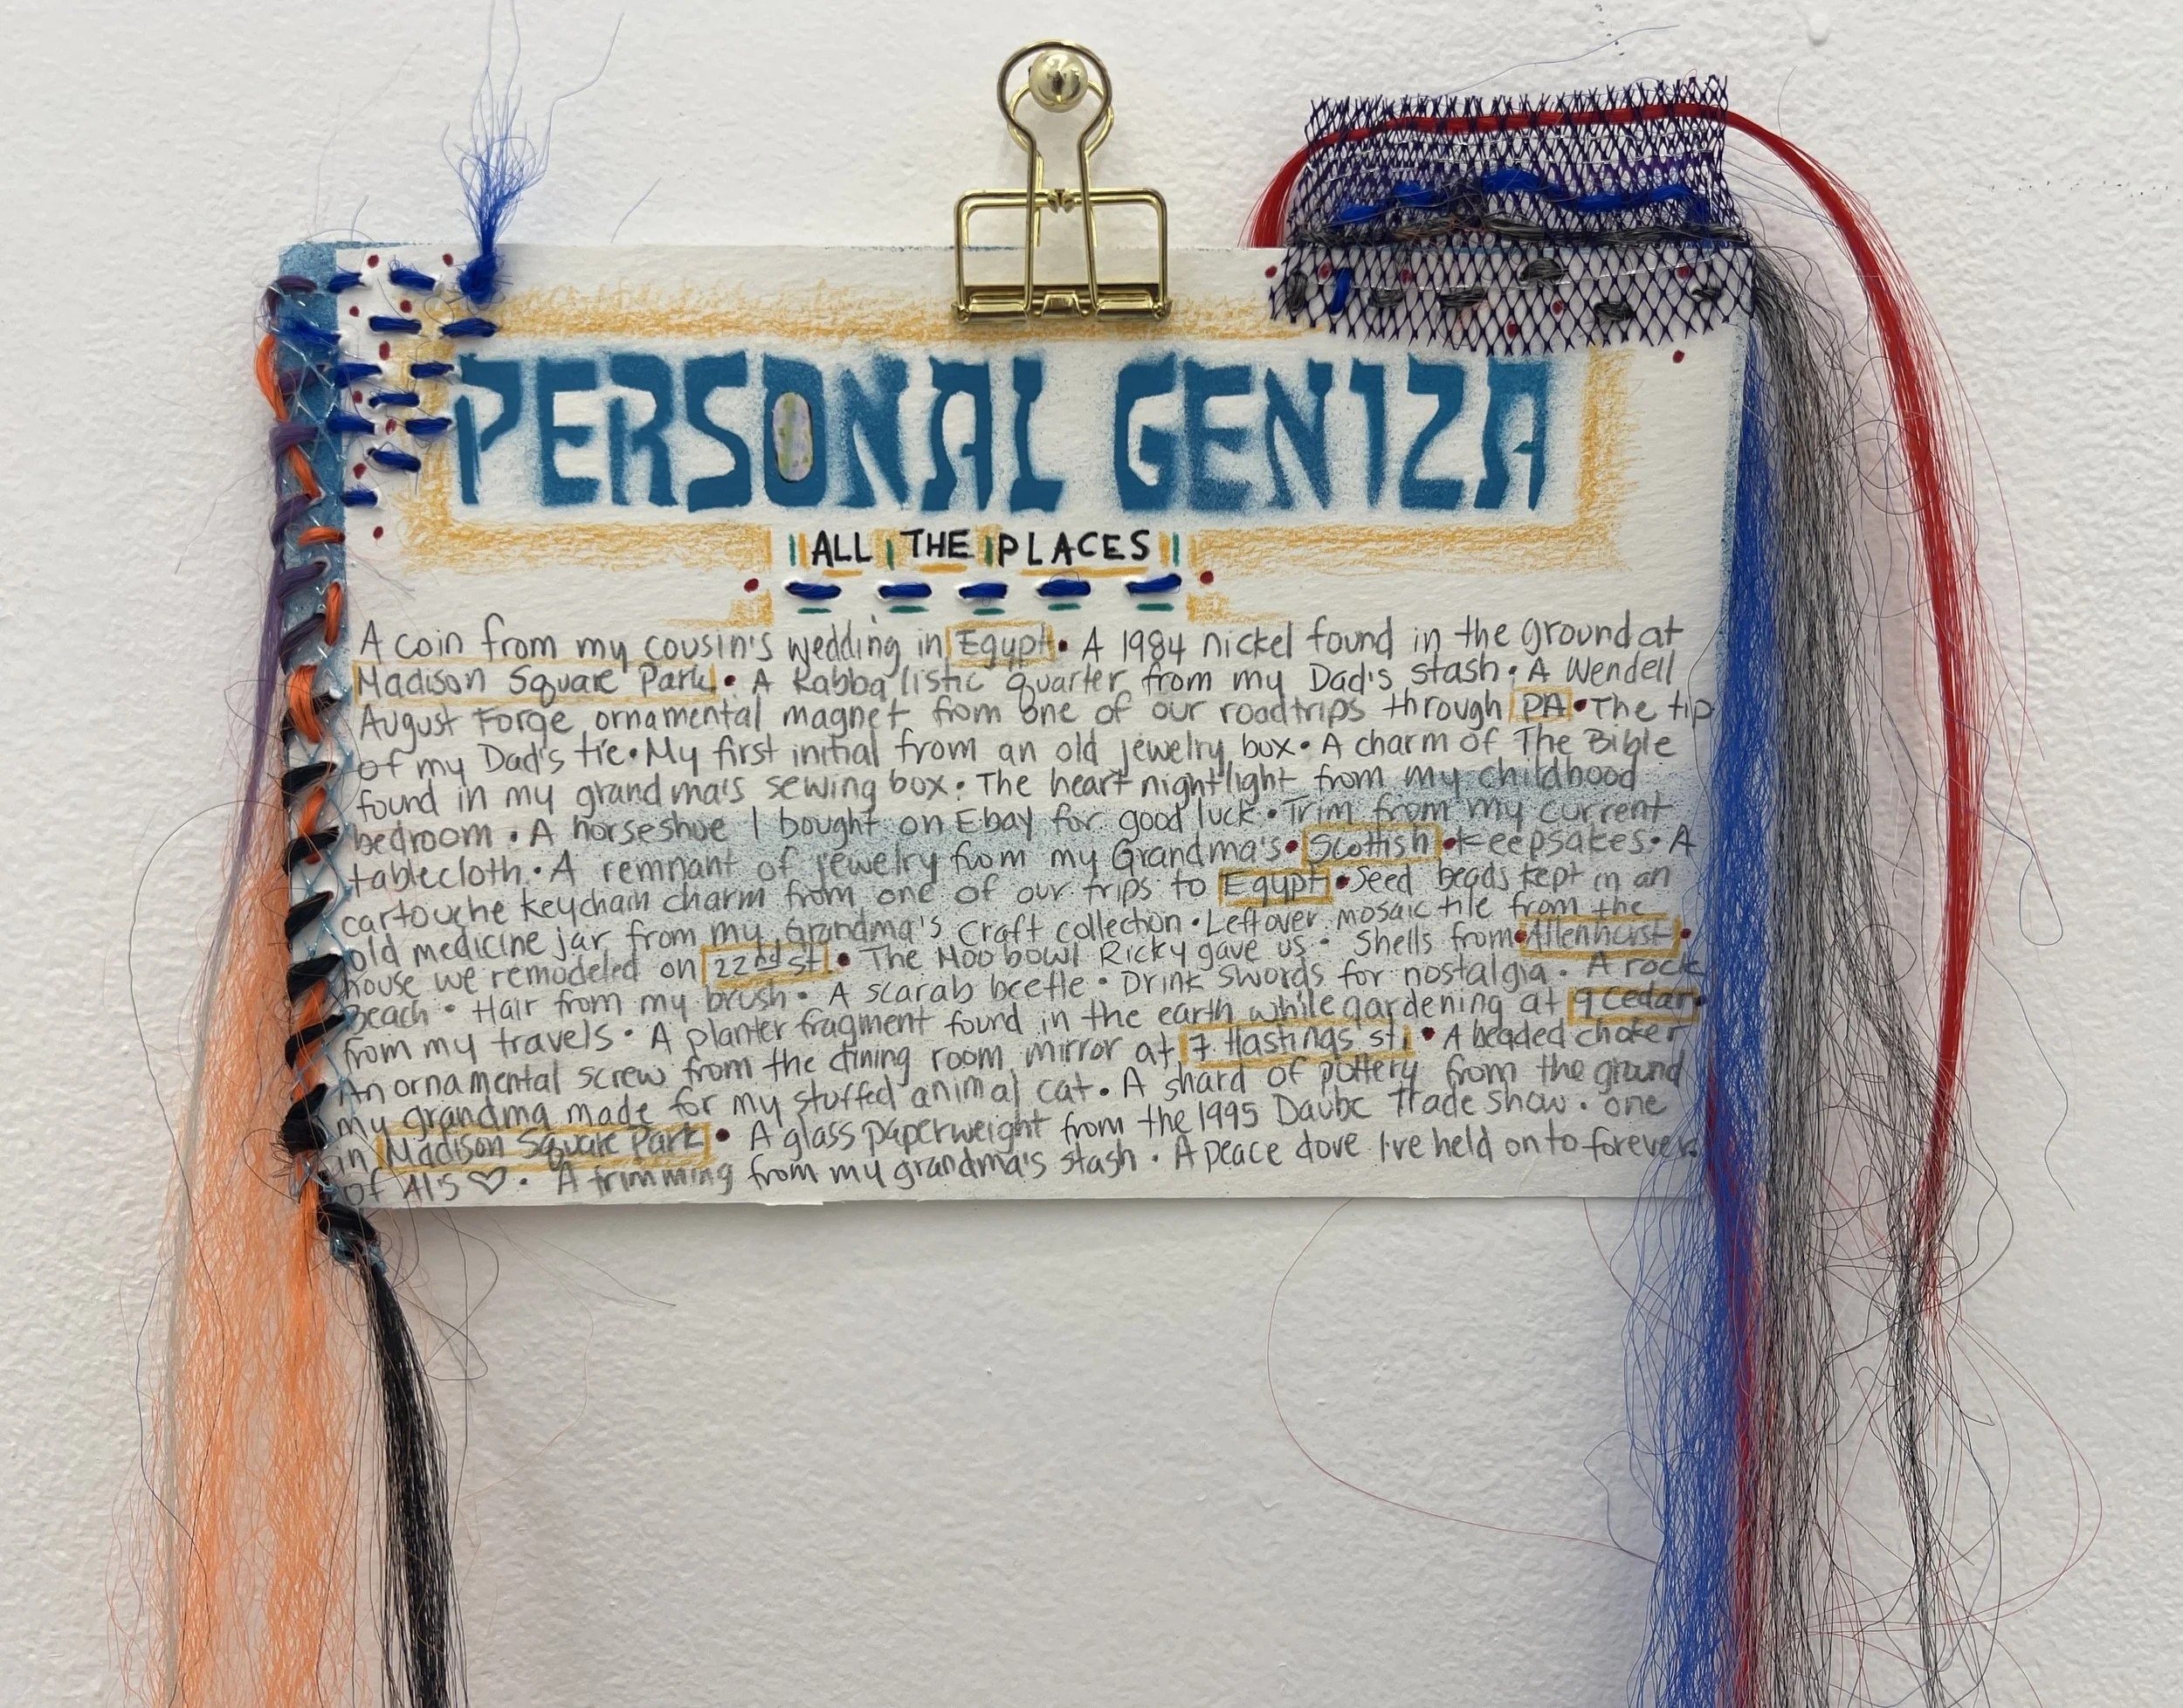 PERSONAL GENIZA
ALL THE PLACES
A coin from my cousin's wedding in Egypt • A 1984 nickel found in the ground at
Madison Square Park • A Kabbalistic quarter from my Dad's stash • A Wendell
August Forge ornamental magnet from one of our roadtrips through PA • The tip
of my Dad's tie • My first initial from an old jewelry box • A charm of The Bible
found in my grandma's sewing box • The heart nightlight from my childhood
bedroom • A horseshoe I bought on Ebay for good luck • Trim from my current
tablecloth • A remnant of jewelry from my Grandma's • Scottish • Keepsakes • A
cartouche keychain charm from one of our trips to Egypt • Seed beads kept in an
old medicine jar from my Grandma's craft collection • Leftover mosaic tile from the
house we remodeled on 22nd st. • The Moo bowl Ricky gave us • Shells from • Allenhurst •
Beach • Hair from my brush • A scarab beetle • Drink swords for nostalgia • A rock
from my travels • A planter fragment found in the earth while gardening at 9 Cedar •
An ornamental screw from the dining room mirror at 7 Hastings st. • A beaded choker
my grandma made for my stuffed animal cat • A shard of pottery from the ground
in Madison Square Park • A glass paperweight from the 1995 Trade show • one
of Al's ♡ • A trimming from my grandma's stash • A peace dove I've held on to forever.